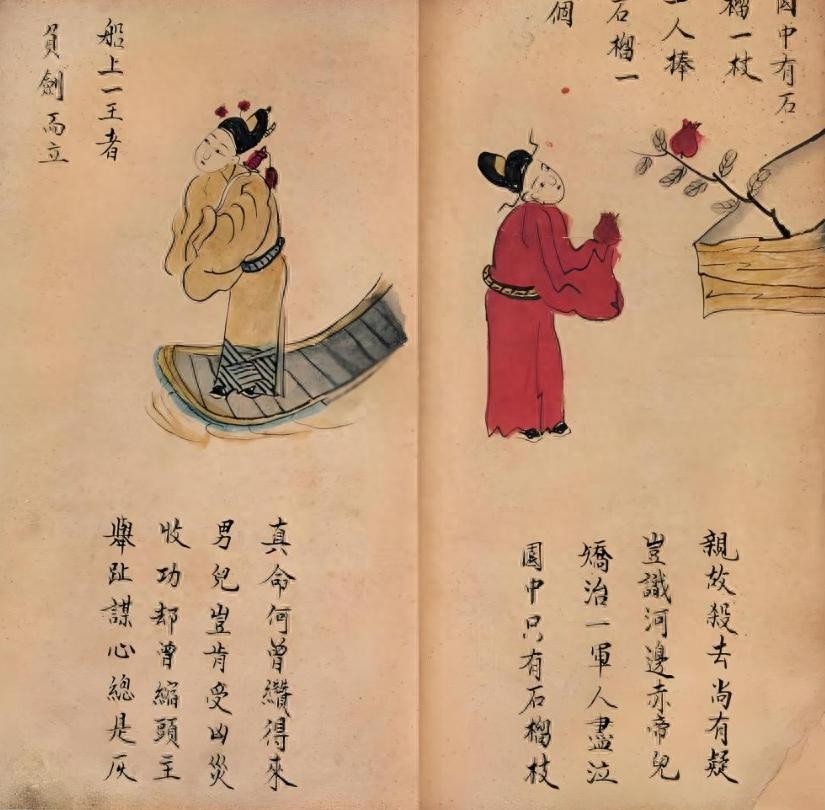 園中有石
榴一枝
一人捧
石榴一
個
親故殺去尚有疑
豈識河邊赤帝兒
矯治一軍人盡泣
園中只有石榴枝
船上一王者
負劍而立
真命何曾纘得來
男兒豈肯受凶災
收功却曾縮頭主
舉趾謀心總是灰